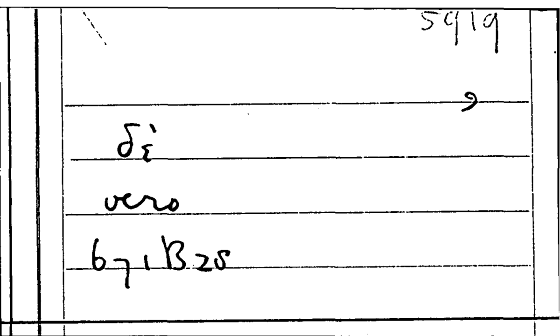 5919
δὲ
vero
671B28